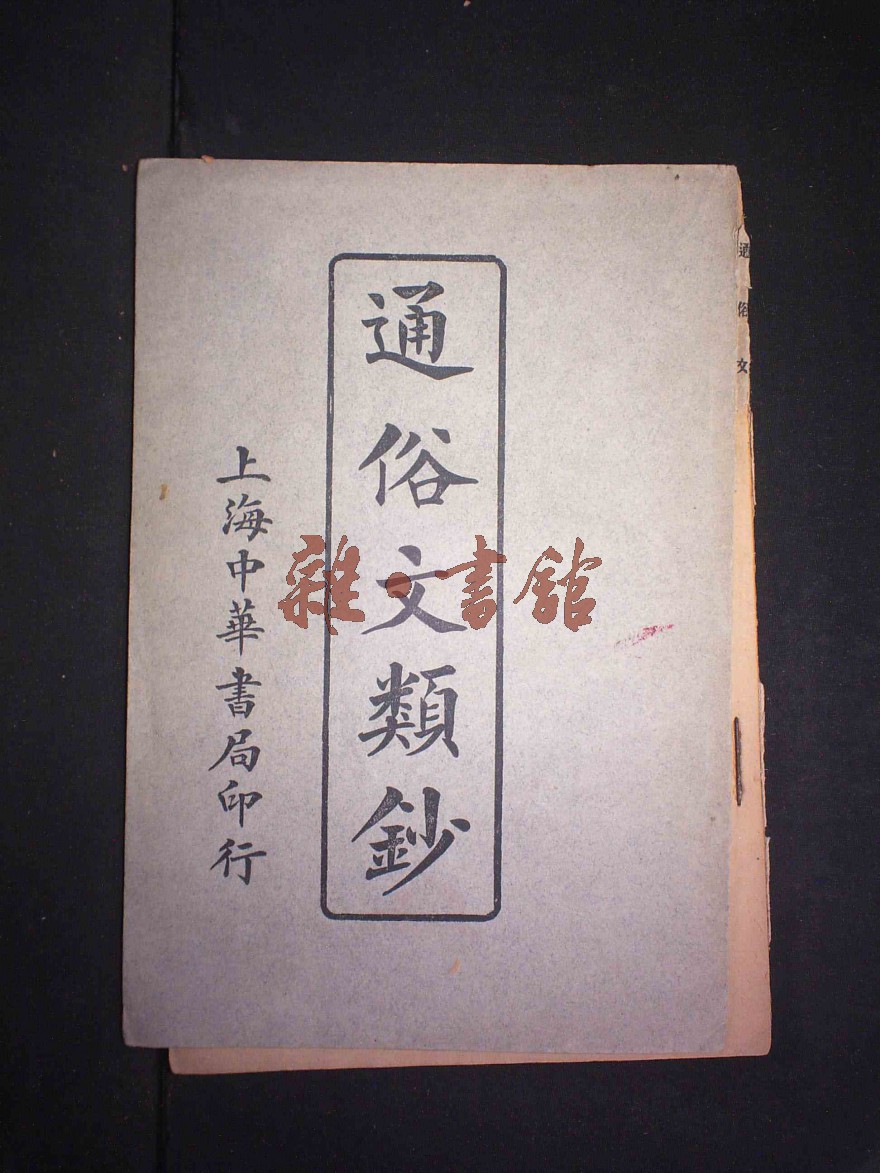 通俗文
通俗文類鈔
上海中華書局印行
雜·書館